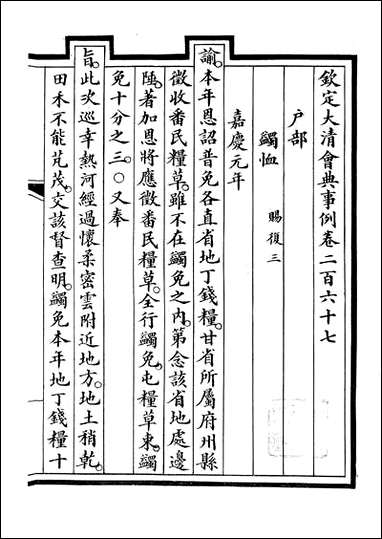 欽定大清會典事例卷二百六十七
户部
蠲恤 賜復三
嘉慶元年
諭。本年恩詔普免各直省地丁錢糧。甘省所屬府州縣
徵收番民糧草。雖不在蠲免之內。第念該省地處邊
陲。著加恩將應徵番民糧草。全行蠲免。屯糧草束。蠲
免十分之三。○又奉
旨。此次巡幸熱河經過懷柔密雲附近地方。地土稍乾。
田禾不能芃茂。交該督查明。蠲免本年地丁錢糧十